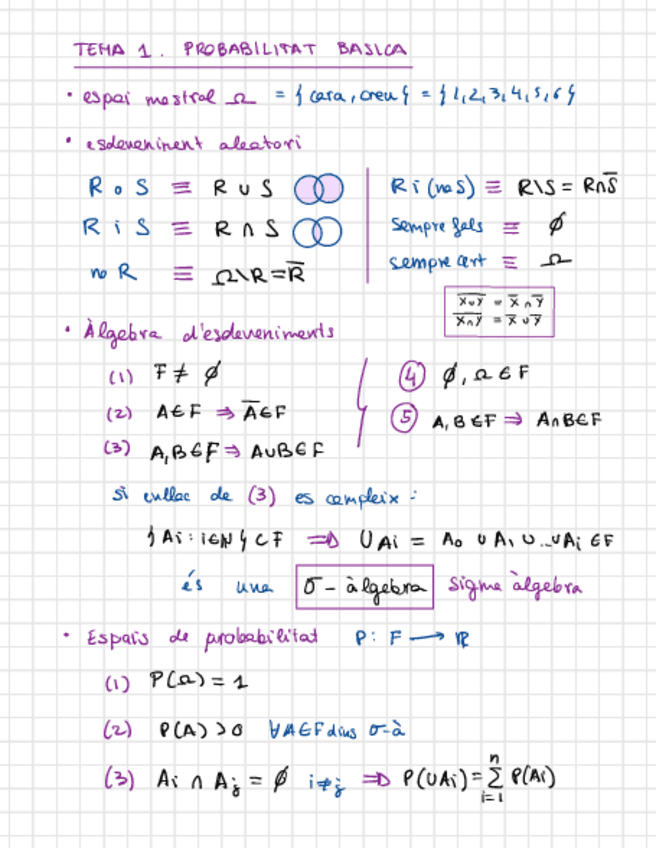 TEMA 1. PROBABILITAT BASICA
• espai mostral Ω = { cara, creu } = { 1, 2, 3, 4, 5, 6 }
• esdeveniment aleatori
R o S ≡ R ∪ S
R i S ≡ R ∩ S
no R ≡ Ω\R = R̅
R i (no S) ≡ R\S = R∩S̅
sempre fals ≡ ∅
sempre cert ≡ Ω
X̅∪̅Y̅ = X̅ ∩ Y̅
X̅∩̅Y̅ = X̅ ∪ Y̅
• Àlgebra d'esdeveniments
(1) F ≠ ∅
(2) A ∈ F ⇒ A̅ ∈ F
(3) A, B ∈ F ⇒ A∪B ∈ F
4 ∅, Ω ∈ F
5 A, B ∈ F ⇒ A∩B ∈ F
si enlloc de (3) es compleix :
{ Ai : i∈N } ⊂ F ⇒ ∪ Ai = A0 ∪ A1 ∪ ... ∪ Ai ∈ F
és una σ - àlgebra sigma àlgebra
• Espais de probabilitat P : F → ℝ
(1) P(Ω) = 1
(2) P(A) > 0 ∀A∈F dins σ-à
(3) Ai ∩ Aj = ∅ i≠j ⇒ P(∪Ai) = n∑i=1 P(Ai)